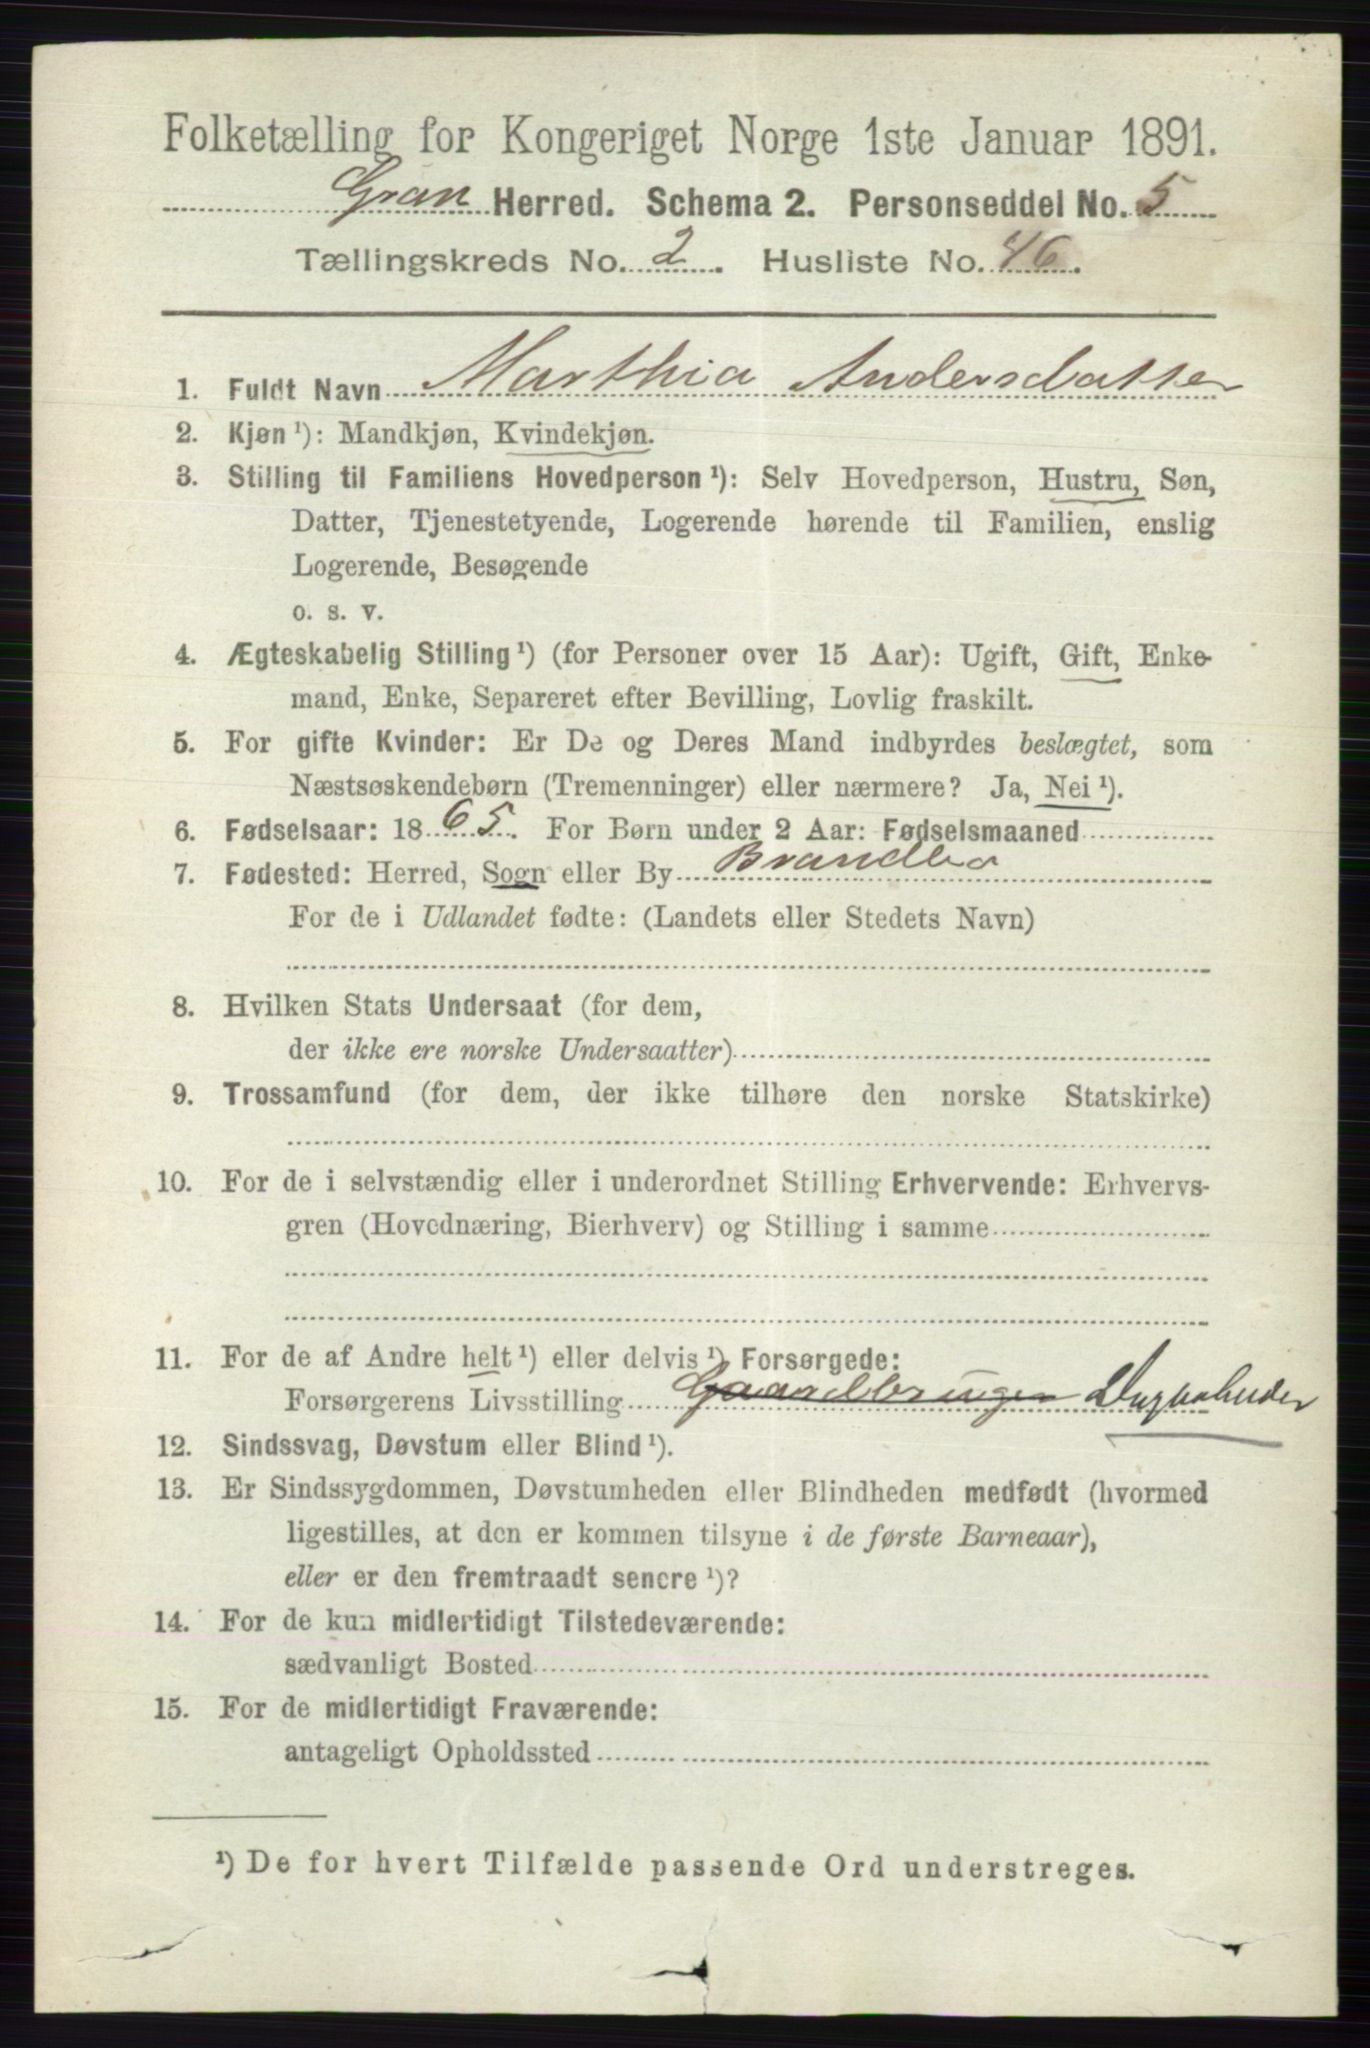 Folketælling for Kongeriget Norge 1ste Januar 1891.
Gran Herred. Schema 2. Personseddel No. 5
Tællingskreds No. 2. Husliste No. 46.
1. Fuldt Navn Marthia Andersdatter
2. Kjøn ¹): Mandkjøn, Kvindekjøn.
3. Stilling til Familiens Hovedperson ¹): Selv Hovedperson, Hustru, Søn,
Datter, Tjenestetyende, Logerende hørende til Familien, enslig
Logerende, Besøgende
o. s. v.
4. Ægteskabelig Stilling ¹) (for Personer over 15 Aar): Ugift, Gift, Enke-
mand, Enke, Separeret efter Bevilling, Lovlig fraskilt.
5. For gifte Kvinder: Er De og Deres Mand indbyrdes beslægtet, som
Næstsøskendebørn (Tremenninger) eller nærmere? Ja, Nei ¹).
6. Fødselsaar: 1865. For Børn under 2 Aar: Fødselsmaaned
7. Fødested: Herred, Sogn eller By Brandbu
For de i Udlandet fødte: (Landets eller Stedets Navn)
8. Hvilken Stats Undersaat (for dem,
der ikke ere norske Undersaatter)
9. Trossamfund (for dem, der ikke tilhøre den norske Statskirke)
10. For de i selvstændig eller i underordnet Stilling Erhvervende: Erhvervs-
gren (Hovednæring, Bierhverv) og Stilling i samme
11. For de af Andre helt ¹) eller delvis ¹) Forsørgede:
Forsørgerens Livsstilling Gaardbruger
12. Sindssvag, Døvstum eller Blind ¹).
13. Er Sindssygdommen, Døvstumheden eller Blindheden medfødt (hvormed
ligestilles, at den er kommen tilsyne i de første Barneaar),
eller er den fremtraadt senere ¹)?
14. For de kun midlertidigt Tilstedeværende:
sædvanligt Bosted
15. For de midlertidigt Fraværende:
antageligt Opholdssted
¹) De for hvert Tilfælde passende Ord understreges.